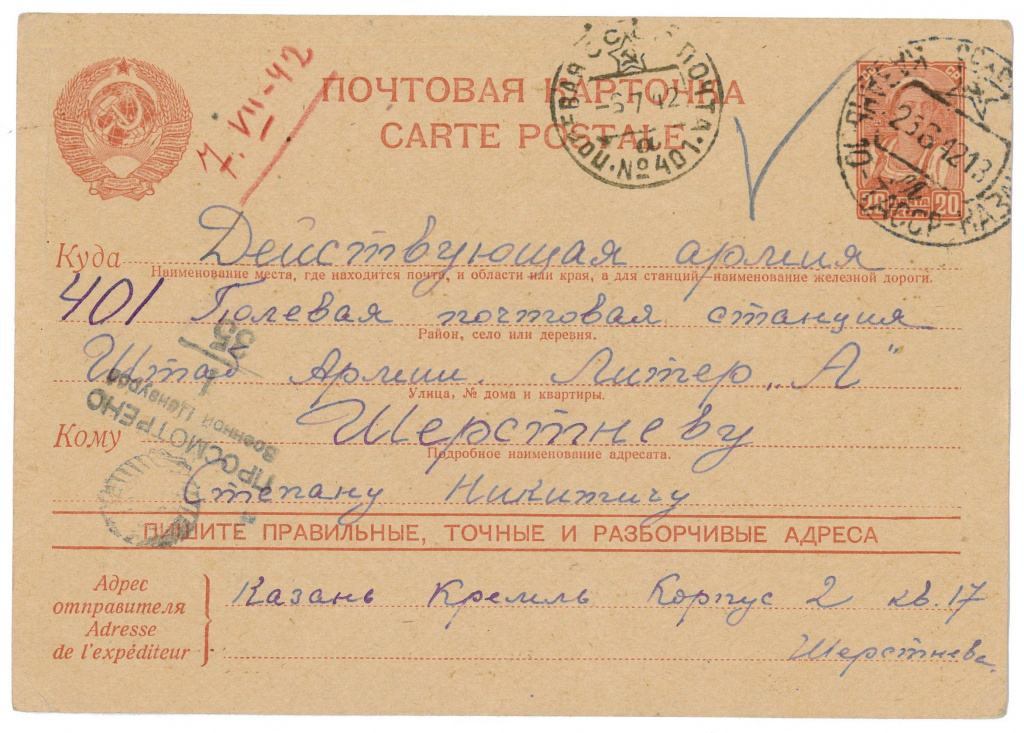 7. VII-42
ПОЧТОВАЯ КАРТОЧКА
CARTE POSTALE
ПОЛЕВАЯ ПОЧТА
-6 7 42
а
№401
23 6 42 13
20 20
Куда Действующая армия
Наименование места, где находится почта, и области или края, а для станций—наименование железной дороги.
401 Полевая почтовая станция
Район, село или деревня.
Штаб Армии. Литер „А"
Улица, № дома и квартиры.
1
35
ПРОСМОТРЕНО
Военной Цензурой
Кому Шерстневу
Подробное наименование адресата.
Степану Никитичу
ПИШИТЕ ПРАВИЛЬНЫЕ, ТОЧНЫЕ И РАЗБОРЧИВЫЕ АДРЕСА
Адрес
отправителя
Adresse
de l'expéditeur
Казань Кремль Корпус 2 кв. 17
Шерстнева